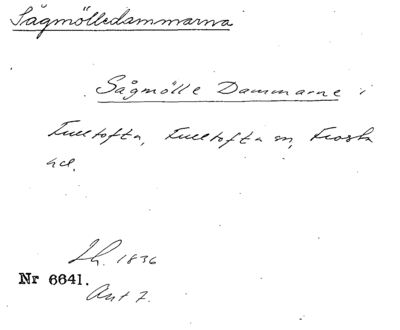 Sågmölledammarna
Sågmölle Dammarne i
Fulltofta, Fulltofta sn, Frosta
hd.
Lh. 1836
Nr 6641.
Akt 7.